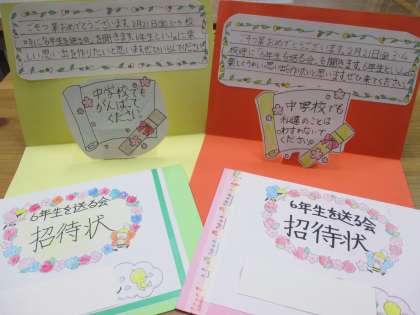 ごそつ業おめでとうございます。2月21日(金)から校
しい思い出を作りたいと思いますぜひ
中学校でも
がんばって
ください
そつ業おめでとうございます。2月21日(金)から
校庭に6年生を送る会を開きます。6年生といっしょに
楽しくうれしい思い出を作りたいと思いますぜひ来てください。
中学校でも
札幌のことは
わすれないで
ください
6年生を送る会
招待状
6年生を送る会
招待状